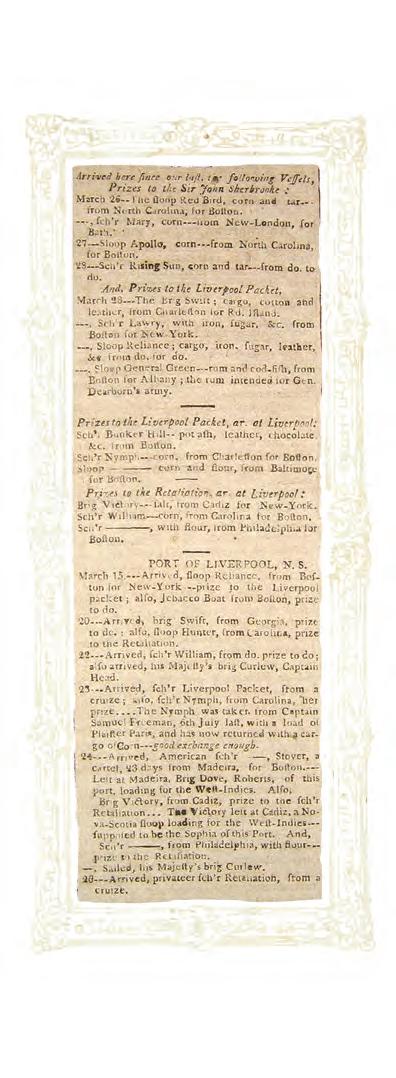 Arrived here ſince our laſt, the following Veſſels,
Prizes to the Sir John Sherbrooke :
March 26---The ſloop Red Bird, corn and tar---
from North Carolina, for Boſton.
---, ſch'r Mary, corn---from New-London, for
Bath.
27---Sloop Apollo, corn---from North Carolina,
for Boſton.
28---Sch'r Riſing Sun, corn and tar---from do. to
do.
And, Prizes to the Liverpool Packet,
March 28---The Brig Swift ; cargo, cotton and
leather, from Charleſton for Rd. Iſland.
---, Sch'r Lawry, with iron, ſugar, &c. from
Boſton for New-York.
---, Sloop Reliance ; cargo, iron, ſugar, leather,
&c. from do. for do.
---, Sloop General Green---rum and cod-fiſh, from
Boſton for Albany ; the rum intended for Gen.
Dearborn's army.
Prizes to the Liverpool Packet, ar. at Liverpool:
Sch'r. Bunker Hill-- pot aſh, leather, chocolate,
&c. from Boſton.
Sch'r Nymph---corn, from Charleſton for Boſton.
Sloop ——— corn and flour, from Baltimore
for Boſton.
Prizes to the Retaliation, ar. at Liverpool :
Brig Victory---ſalt, from Cadiz for New-York.
Sch'r William---corn, from Carolina for Boſton.
Sch'r ———, with flour, from Philadelphia for
Boſton.
PORT OF LIVERPOOL, N. S.
March 15.---Arrived, ſloop Reliance, from Boſ-
ton for New-York --prize to the Liverpool
packet ; alſo, Jebacco Boat from Boſton, prize
to do.
20---Arrived, brig Swift, from Georgia, prize
to do. ; alſo, ſloop Hunter, from Carolina, prize
to the Retaliation.
22---Arrived, ſch'r William, from do. prize to do ;
alſo arrived, his Majeſty's brig Curlew, Captain
Head.
23---Arrived, ſch'r Liverpool Packet, from a
cruize ; alſo, ſch'r Nymph, from Carolina, her
prize....The Nymph was taken from Captain
Samuel Freeman, 6th July laſt, with a load of
Plaiſter Paris, and has now returned with a car-
go of Corn---good exchange enough.
24---Arrived, American ſch'r —, Stover, a
cartel, 23 days from Madeira, for Boſton.---
Left at Madeira, Brig Dove, Roberts, of this
port, loading for the Weſt-Indies. Alſo,
Brig Victory, from Cadiz, prize to the ſch'r
Retaliation... The Victory left at Cadiz, a No-
va-Scotia ſloop loading for the Weſt-Indies---
ſuppoſed to be the Sophia of this Port. And,
Sch'r ———, from Philadelphia, with flour---
prize to the Retaliation.
—, Sailed, his Majeſty's brig Curlew.
26---Arrived, privateer ſch'r Retaliation, from a
cruize.